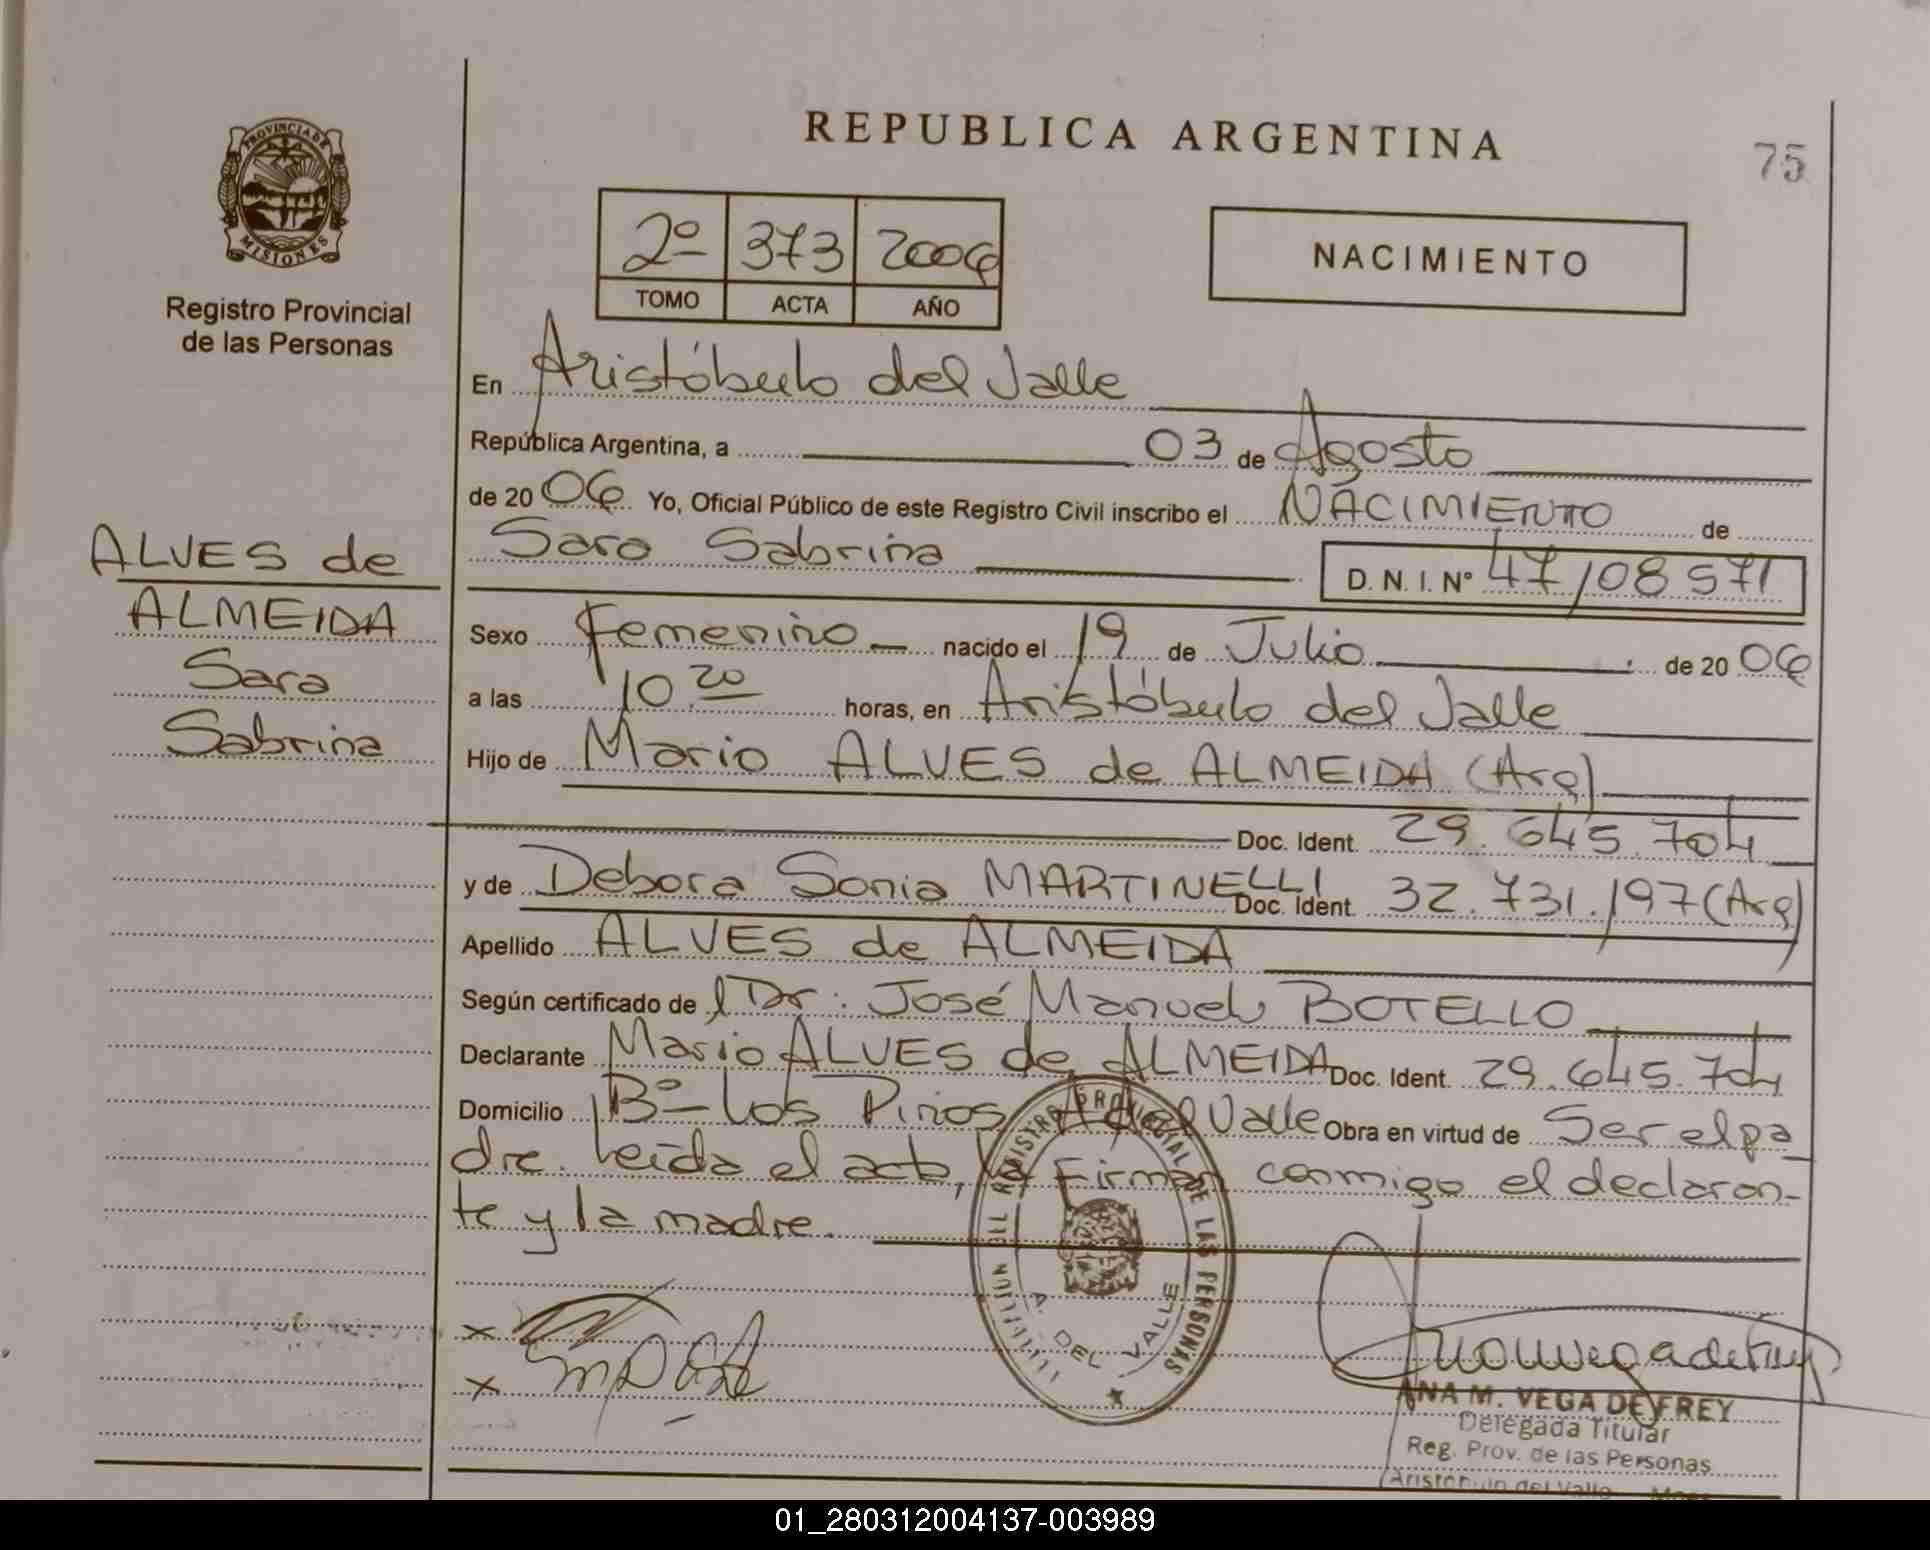 REPUBLICA ARGENTINA
75
PROVINCIA DE
MISIONES
Registro Provincial
de las Personas
2º 373 2006
TOMO ACTA AÑO
NACIMIENTO
En Aristóbulo del Valle
República Argentina, a 03 de Agosto
de 2006 Yo, Oficial Público de este Registro Civil inscribo el NACIMIENTO de
Sara Sabrina D. N. I. Nº 47108571
ALVES de
ALMEIDA
Sara
Sabrina
Sexo Femenino nacido el 19 de Julio de 2006
a las 10.20 horas, en Aristóbulo del Valle
Hijo de Mario ALVES de ALMEIDA (Arg)
Doc. Ident. 29.645.704
y de Debora Sonia MARTINELLI Doc. Ident. 32.731.197 (Arg)
Apellido ALVES de ALMEIDA
Según certificado de l Dr. José Manuel BOTELLO
Declarante Mario ALVES de ALMEIDA Doc. Ident. 29.645.704
Domicilio Bº Los Pinos, A del Valle Obra en virtud de Ser el pa
dre. Leída el acta, la Firman conmigo el declaran-
te y la madre.
REGISTRO PROVINCIAL DE LAS PERSONAS
A. DEL VALLE
x
x
ANA M. VEGA DE FREY
Delegada Titular
Reg. Prov. de las Personas
Aristóbulo del Valle
01_280312004137-003989